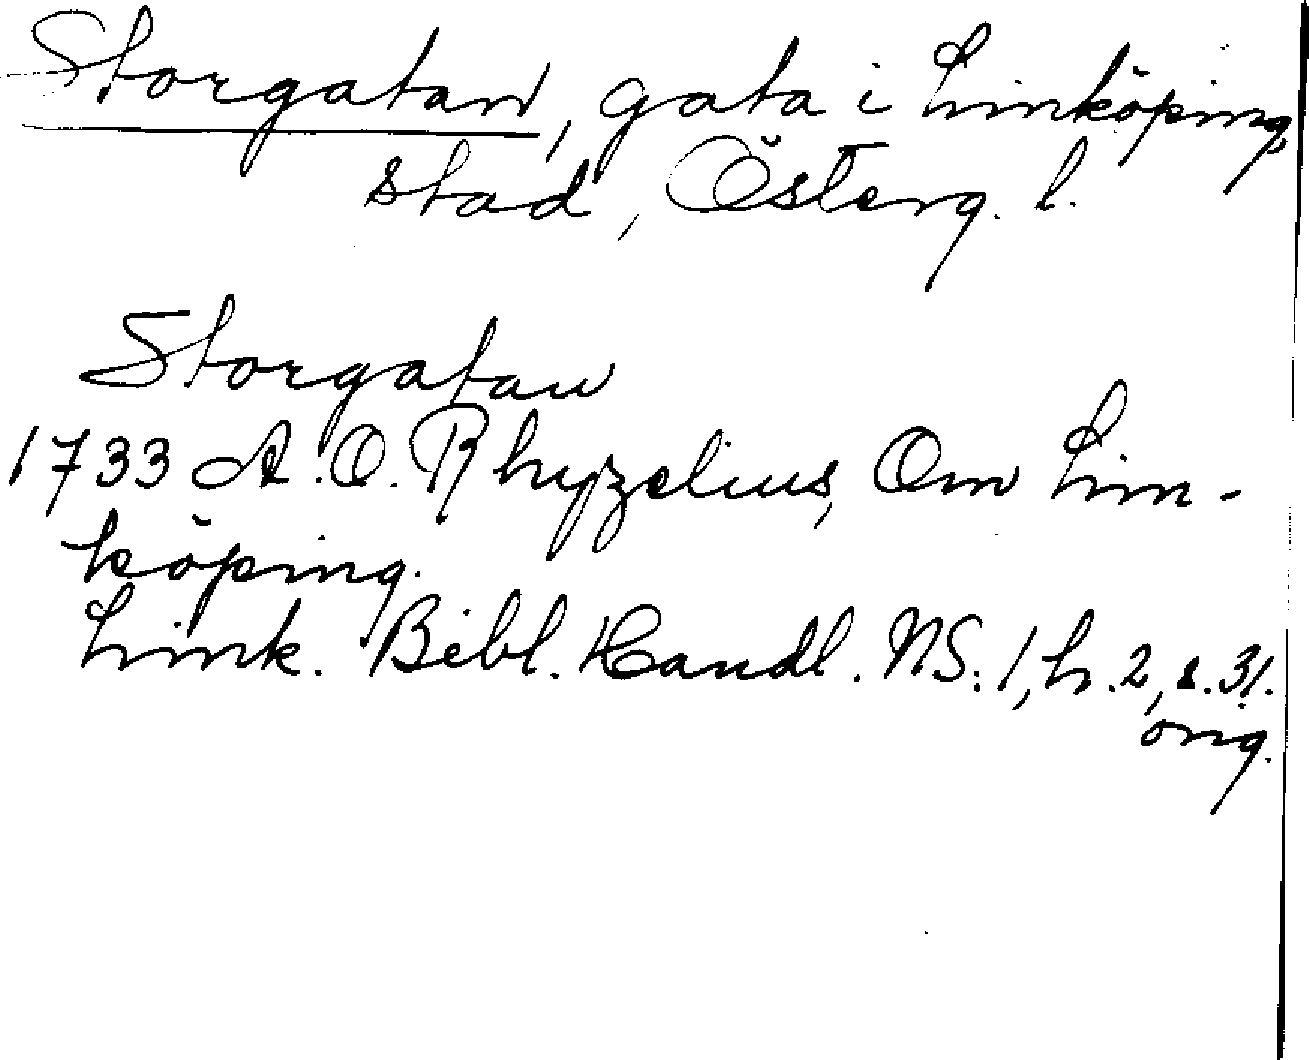 Storgatan, gata i Linköping
stad, Österg. l.
Storgatan
1733 A. O. Rhyzelius, Om Lin-
köping.
Link. Bibl. Handl. NS: 1, h. 2, s. 31.
orig.